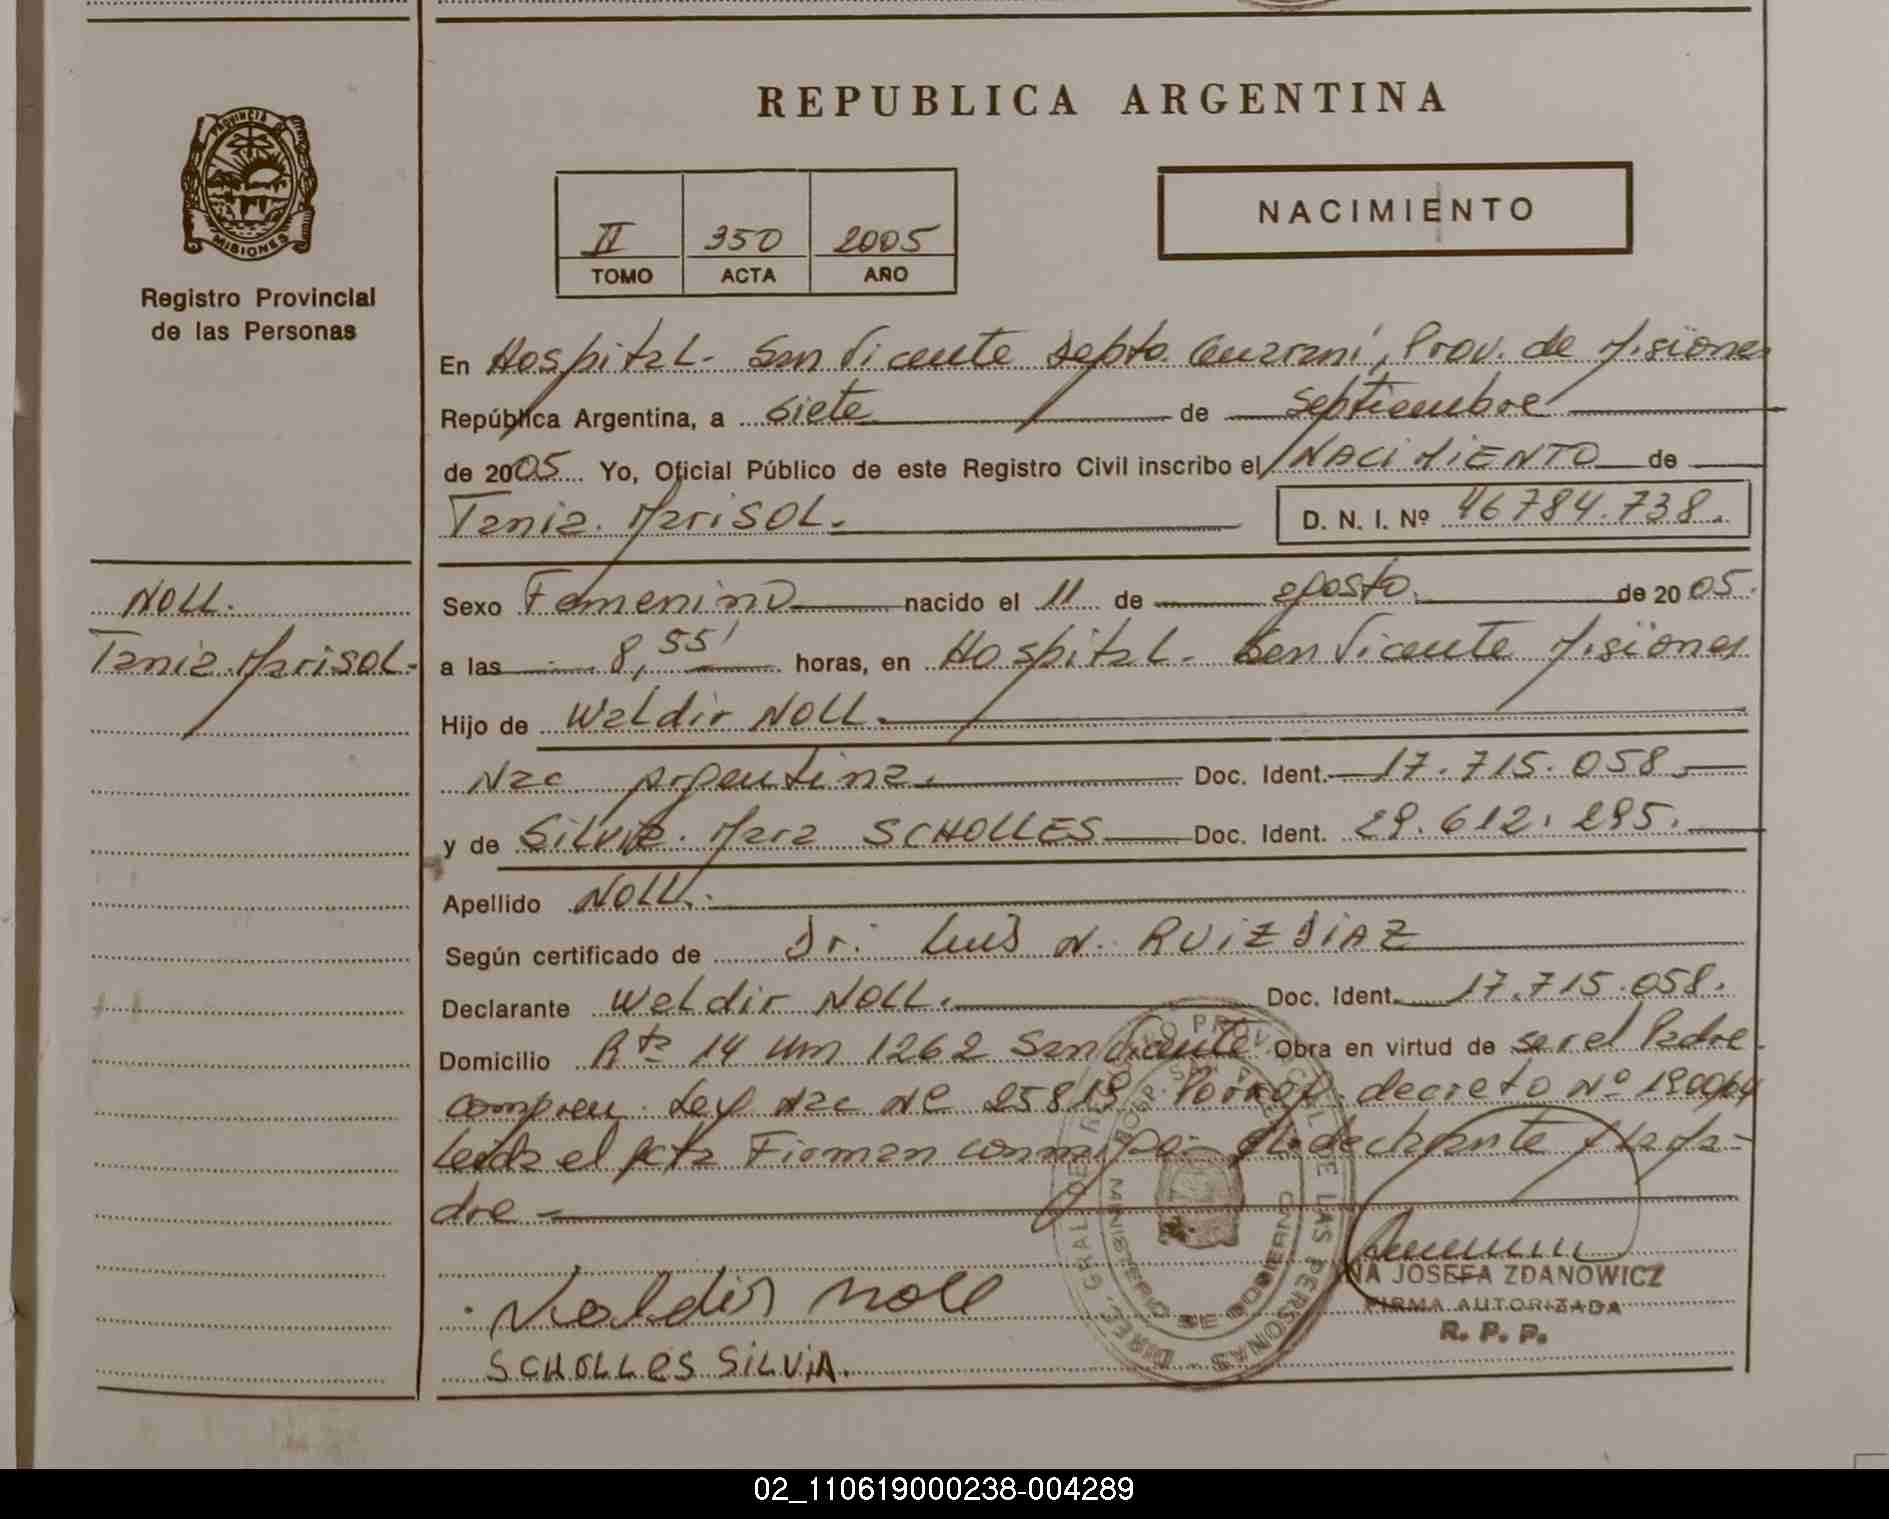 REPUBLICA ARGENTINA
PROVINCIA DE
MISIONES
Registro Provincial
de las Personas
II 350 2005
TOMO ACTA AÑO
NACIMIENTO
En Hospital - San Vicente Depto. Guaraní, Prov. de Misiones
República Argentina, a siete de Septiembre
de 2005 Yo, Oficial Público de este Registro Civil inscribo el NACIMIENTO de
Tania Marisol. D. N. I. Nº 46784.738.
NOLL.
Tania Marisol-
Sexo Femenino nacido el 11 de agosto de 2005.
a las 8,55' horas, en Hospital - San Vicente Misiones
Hijo de Waldir NOLL.
Nac Argentina. Doc. Ident. 17.715.058.
y de Silvia Mara SCHOLLES Doc. Ident. 29.612.295.
Apellido NOLL.
Según certificado de Dr. Luis N. RUIZ DIAZ
Declarante Waldir NOLL. Doc. Ident. 17.715.058.
Domicilio Rta 14 Km 1262 San Vicente Obra en virtud de ser el Padre.
Ley Nac Nº 25819 decreto Nº 1900/04
Leida el Acta Firman conmigo el declarante y la Ma-
dre -
Waldir Noll
SCHOLLES SILVIA.
DIREC. GRAL DE REGISTRO PROVINCIAL DE LAS PERSONAS
MINISTERIO DE GOBIERNO
NA JOSEFA ZDANOWICZ
FIRMA AUTORIZADA
R. P. P.
02_110619000238-004289